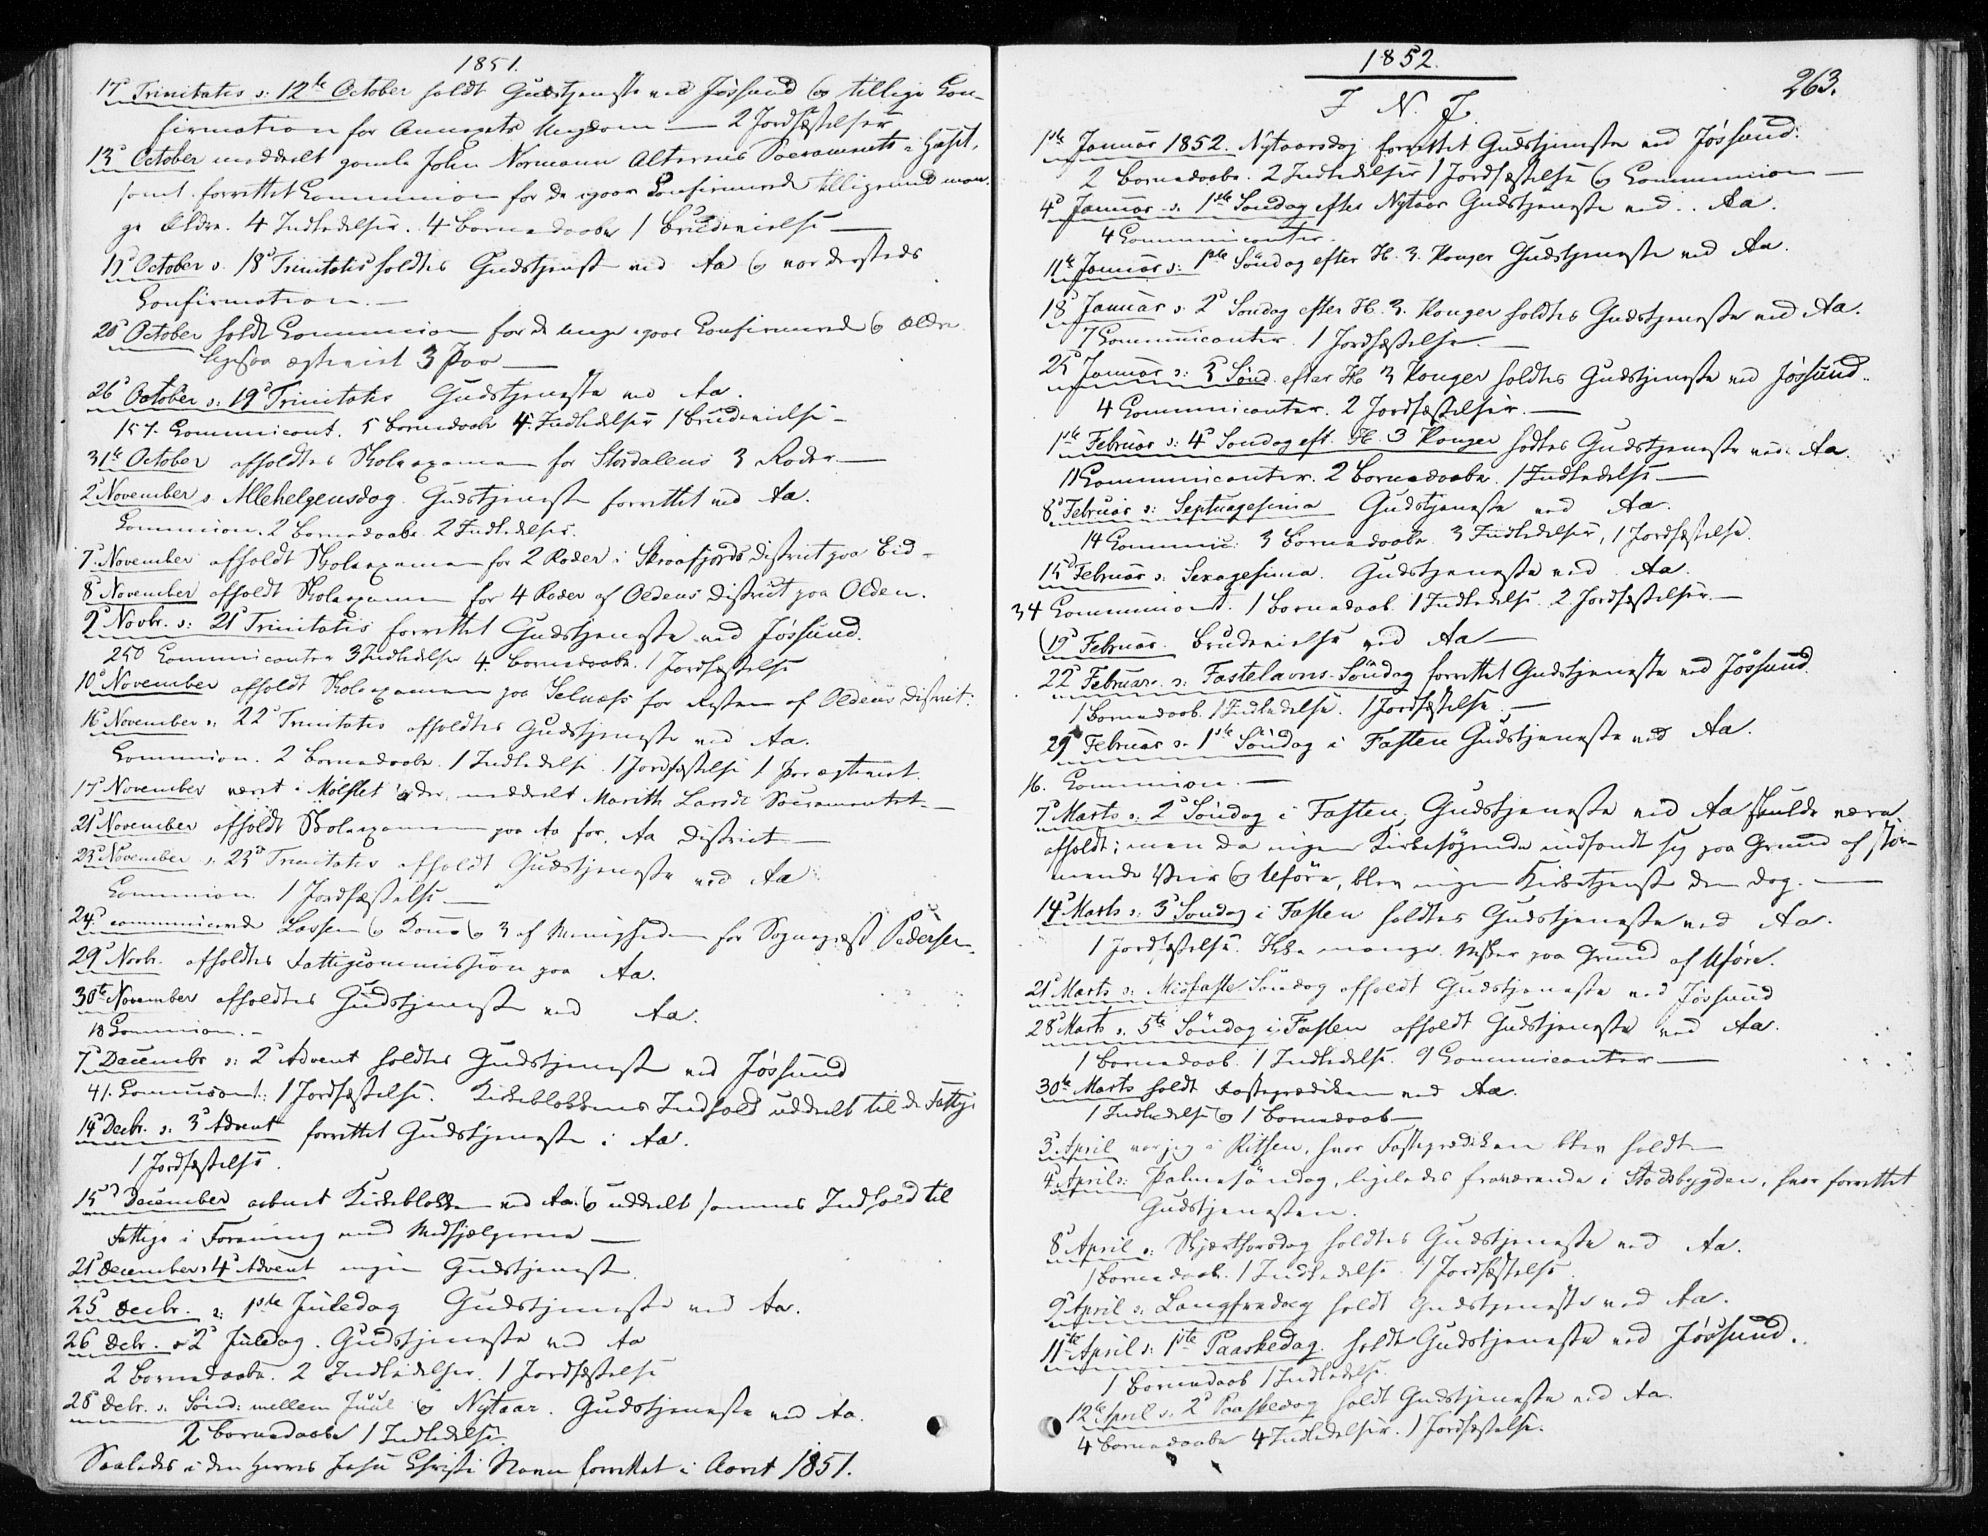 1851.
17de Trinitatis o: 12te October holdt Gudstjeneste ved Jössund og tillige Con-
firmation for Annexets Ungdom — 2 Jordfæstelser
13d October meddeelt gamle John Normann Alterens Sacramente i Huset,
samt forrettet Communion for de igaar Confirmerede tilligemed man-
ge Ældre. 4 Indledelser. 4 Barnedaabe 1 Brudevielse —
19d October o: 18d Trinitatis holdtes Gudstjeneste ved Aa og var dersteds
Confirmation. —
20d October holdt Communion for de unge igaar Confirmerede og ældre
ligesaa ægteviet 3 Par —
26d October o: 19d Trinitatis Gudstjeneste ved Aa.
157. Communicant. 5 Barnedaabe 4. Indledelser 1 Brudevielse —
31te October afholdtes Skoleexamen for Stordalens 3 Roder. —
2d November o Allehelgensdag. Gudstjeneste forrettet ved Aa.
Communion. 2 Barnedaabe. 2 Indledelser.
7d November afholdt Skoleexamen for 2 Roder i Skroafjords District paa Eid —
8d November afholdt Skoleexamen for 4 Roder af Oldens District paa Olden.
9d Novbr. o: 21d Trinitatis forrettet Gudstjeneste ved Jössund.
250 Communicanter 3 Indledelser 4. Barnedaabe. 1 Jordfæstelse
10d November afholdt Skoleexamen paa Selnæss for Resten af Oldens District.
16d November o: 22d Trinitatis afholdtes Gudstjeneste ved Aa.
Communion. 2 Barnedaabe. 1 Indledelse. 1 Jordfæstelse 1 Par ægteviet.
17d November været i Mölslet og der meddeelt Marith Larsdt Sacramentet. —
21d November afholdt Skoleexamen paa Aa for Aa District —
23d November o: 23d Trinitatis afholdt Gudstjeneste ved Aa.
Communion. 1 Jordfæstelse —
24d communicerede Lassen og Kone og 3 af Menigheden for Sognepræst Pedersen.
29d Novbr. afholdtes Fattigcommission paa Aa.
30te November afholdtes Gudstjeneste ved Aa.
18 Communion. —
7d Decembr o: 2d Advent holdtes Gudstjeneste ved Jössund
41. Communicant. 1 Jordfæstelse. Kirkeblokkens Indhold uddeelt til de Fattige
14d Decbr. o: 3d Advent forrettet Gudstjeneste i Aa.
1 Jordfæstelse.
15d December aabnet Kirkeblokken ved Aa og uddeelt sammes Indhold til
Fattige i Forening med Medhjælperne —
21d December o: 4d Advent ingen Gudstjeneste.
25d Decbr. o: 1ste Juledag Gudstjeneste ved Aa.
26 Debr. o 2d Juledag. Gudstjeneste ved Aa
2 Barnedaabe. 2 Indledelser. 1 Jordfæstelse
28d Debr. o. Sönd: mellem Juul og Nytaar. Gudstjeneste ved Aa.
2 Barnedaabe 1 Indledelse.
Saaledes i den Herres Jesu Christi Navn forrettet i Aaret 1851.
1852.
263.
I N. J.
1ste Januar 1852. Nytaarsdag forrettet Gudstjeneste ved Jössund.
2 Barnedaabe. 2 Indledelser 1 Jordfæstelse og Communion —
4d Januar o: 1ste Söndag efter Nytaar Gudstjeneste ved .. Aa.
4 Communicanter.
11te Januar o: 1ste Söndag efter H. 3. Konger Gudstjeneste ved Aa.
18d Januar o: 2d Söndag efter H. 3. Konger holdtes Gudstjeneste ved Aa.
7 Communicanter. 1 Jordfæstelse. —
25d Januar o: 3d Sönd. efter H. 3 Konger holdtes Gudstjeneste ved Jössund.
4 Communicanter. 2 Jordfæstelser. —
1ste Februar o: 4d Söndag eft. H. 3 Konger holdtes Gudstjeneste ved Aa.
11 Communicanter. 2 Barnedaabe. 1 Indledelse —
8d Februar o: Septuagesima Gudstjeneste ved Aa.
14 Commu: 3 Barnedaabe. 3 Indledelser, 1 Jordfæstelse.
15d Februar o: Sexagesima. Gudstjeneste ved Aa.
34 Communicant. 1 Barnedaab. 1 Indledelse. 2 Jordfæstelser. —
(19d Februar. Brudevielse ved Aa —
22d Februar. o: Fastelavns-Söndag forrettet Gudstjeneste ved Jössund
1 Barnedaab. 1 Indledelse. 1 Jordfæstelse. —
29d Februar o. 1ste Söndag i Fasten Gudstjeneste ved Aa.
16. Communion. —
7d Marts o. 2d Söndag i Fasten, Gudstjeneste ved Aa skulde være
afholdt; men da ingen Kirkesögende indfandt sig paa Grund af stor-
mende Veir og Uföre, blev ingen Kirketjeneste den dag. —
14d Marts o: 3d Söndag i Fasten holdtes Gudstjeneste ved Aa.
1 Jordfæstelse. Ikke mange Msker paa Grund af Uföre.
21d Marts o: Midfaste Söndag afholdt Gudstjeneste ved Jössund
28d Marts o. 5te Söndag i Fasten afholdt Gudstjeneste ved Aa.
1 Barnedaab. 1 Indledelse. 9 Communicanter —
30te Marts holdt Fasteprædiken ved Aa.
1 Indledelse og 1 Barnedaab —
3. April var jeg i Ritsen, hvor Fasteprædiken blev holdt —
4. April o: Palmesöndag, ligeledes fraværende i Stadsbygden, hvor forrettet
Gudstjenesten.
8d April o: Skjærthorsdag holdtes Gudstjeneste ved Aa.
1 Barnedaab. 1 Indledelse. 1 Jordfæstelse.
9d April o: Langfredag holdt Gudstjeneste ved Aa.
11te April o: 1ste Paaskedag. holdt Gudstjeneste ved Jössund.
1 Barnedaab 1 Indledelse.
12te April o. 2d Paaskedag holdt Gudstjeneste ved Aa.
4 Barnedaabe 4 Indledelser. 1 Jordfæstelse.